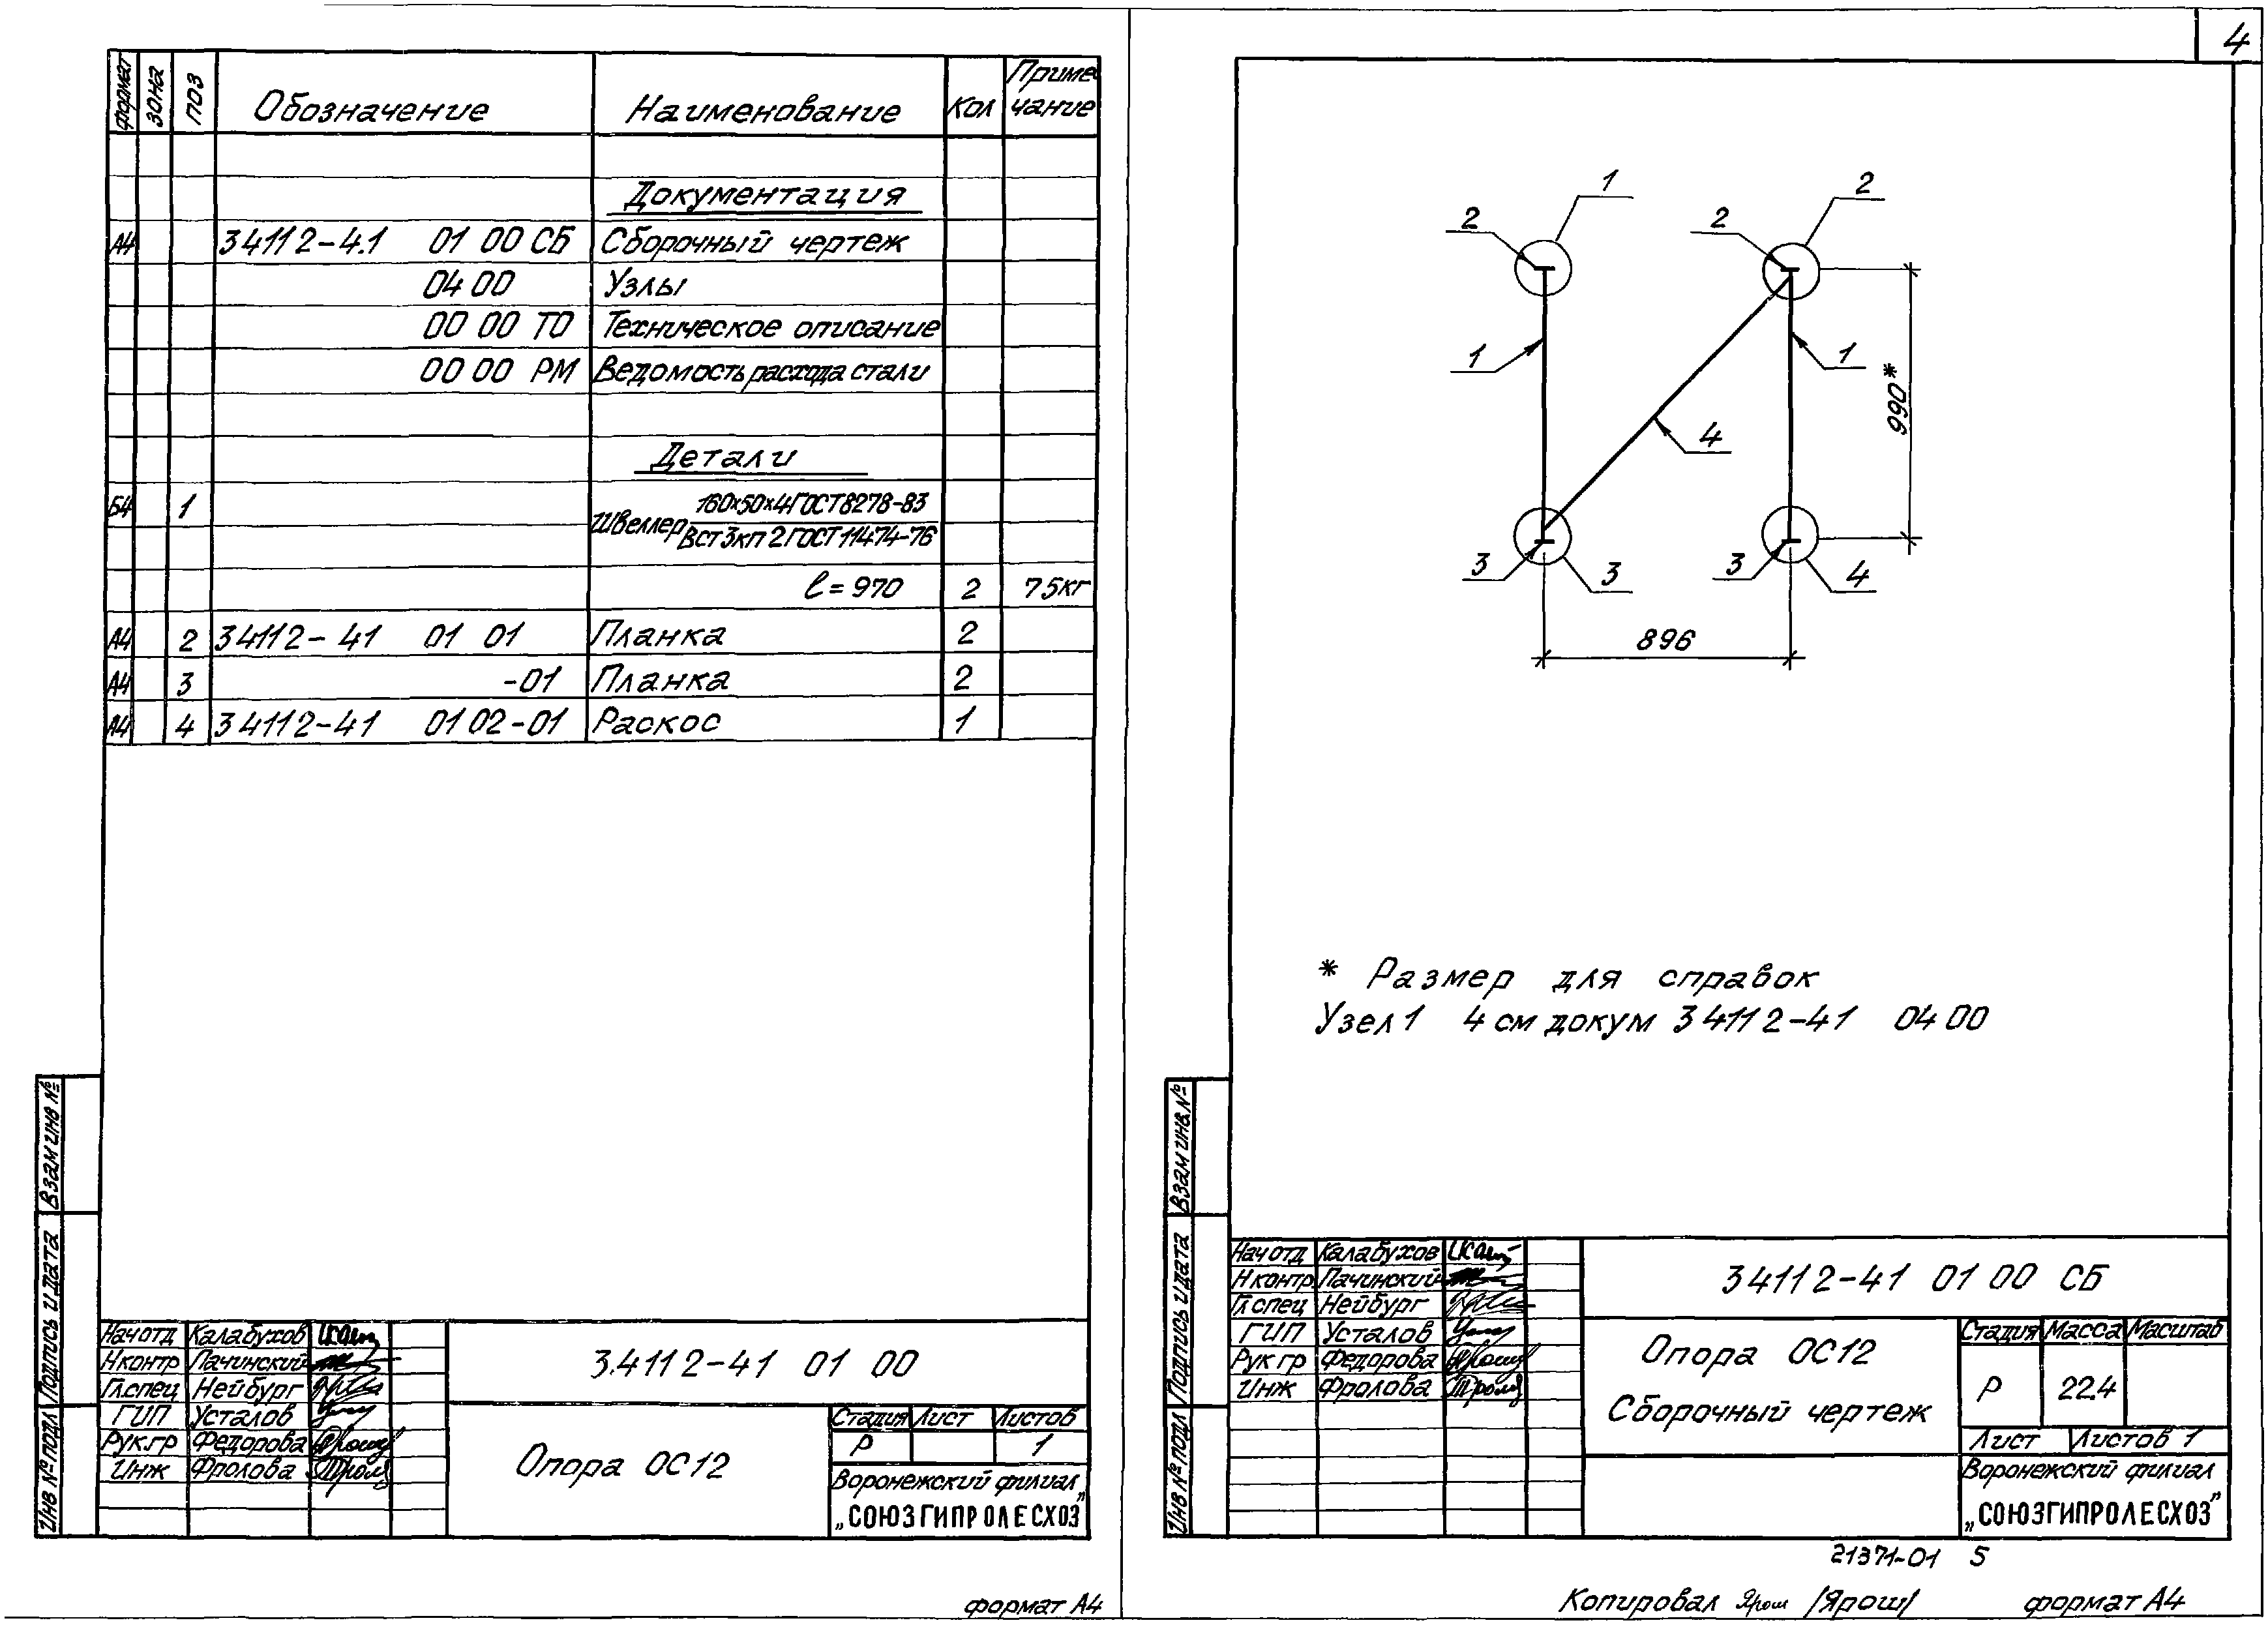 Формат Зона Поз Обозначение Наименование Кол Приме
чание
Документация
А4 34112-4.1 01 00 СБ Сборочный чертеж
04 00 Узлы
00 00 ТО Техническое описание
00 00 РМ Ведомость расхода стали
Детали
Б4 1 Швеллер 160×50×4 ГОСТ 8278-83
ВСт3кп2 ГОСТ 11474-76
ℓ=970 2 75кг
А4 2 34112-41 01 01 Планка 2
А4 3 -01 Планка 2
А4 4 34112-41 01 02-01 Раскос 1
Взам инв №
Подпись и дата
Инв № подл
Нач отд Калабухов
Н контр Пачинский
Гл.спец Нейбург
ГИП Усталов
Рук.гр Федорова
Инж Фролова
3.4112-41 01 00
Опора ОС12
Стадия Лист Листов
Р 1
Воронежский филиал
„СОЮЗГИПРОЛЕСХОЗ"
формат А4
4
1 2
2 2
1 1
990*
4
3 3 3 4
896
* Размер для справок
Узел 1 4 см докум 34112-41 04 00
Взам инв.№
Подпись и дата
Инв № подл
Нач отд Калабухов
Н контр Пачинский
Гл.спец Нейбург
ГИП Усталов
Рук гр Федорова
Инж Фролова
34112-41 01 00 СБ
Опора ОС12
Сборочный чертеж
Стадия Масса Масштаб
Р 22.4
Лист Листов 1
Воронежский филиал
„СОЮЗГИПРОЛЕСХОЗ"
21371-01 5
Копировал Ярош /Ярош/ формат А4